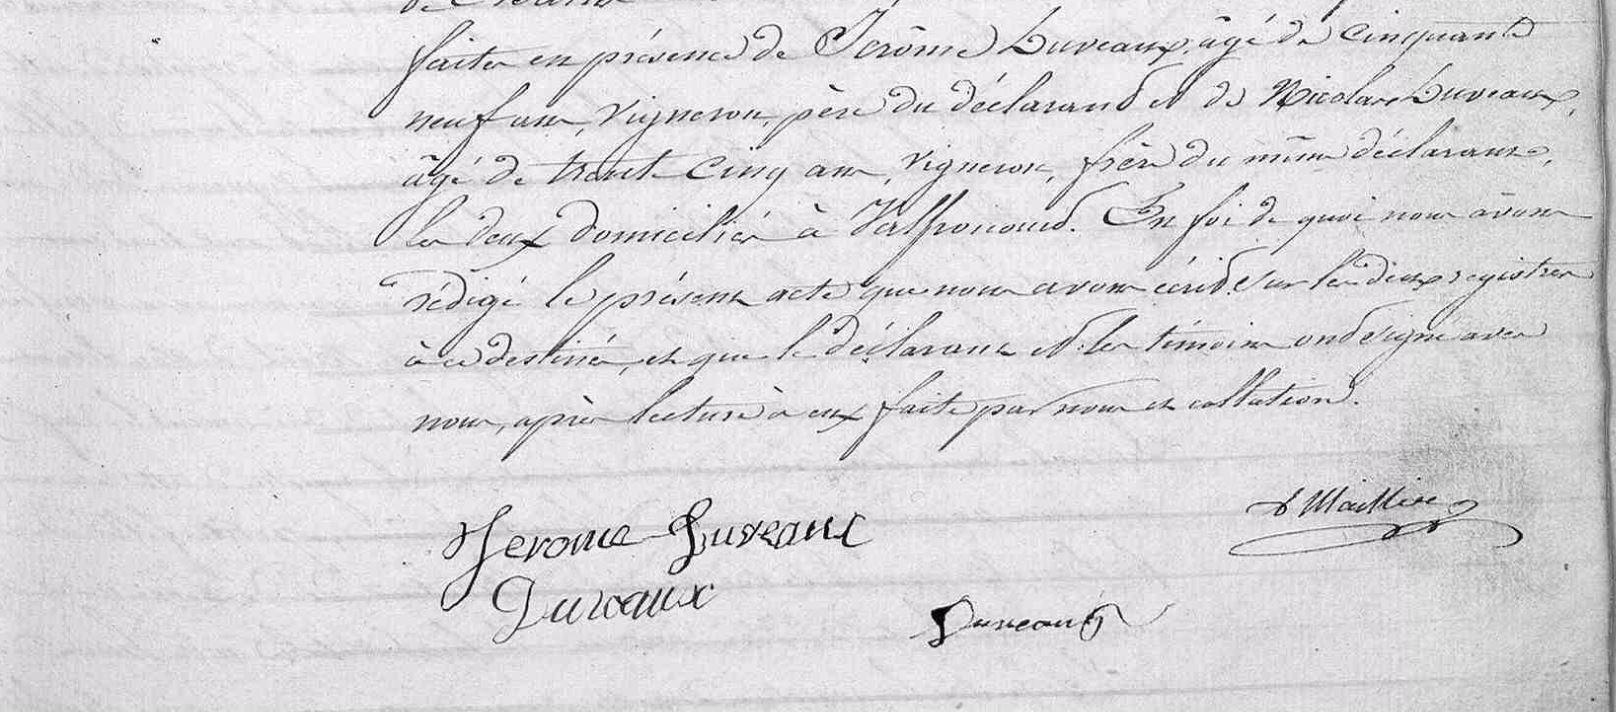 faite en présence de Jérôme Luveaux, âgé de cinquante
neuf ans, vigneron, père du déclarand et de Nicolas Luveaux,
âgé de trente cinq ans, vigneron, frère du même déclarant,
les deux domiciliés à Valfroicourt. En foi de quoi nous avons
rédigé le présent acte que nous avons écrit sur les deux registres
à ce destinés, et que le déclarant et les témoins ont signé avec
nous, après lecture à eux faite par nous et collation.
Jerome Luveaux
Luveaux
Luveaux